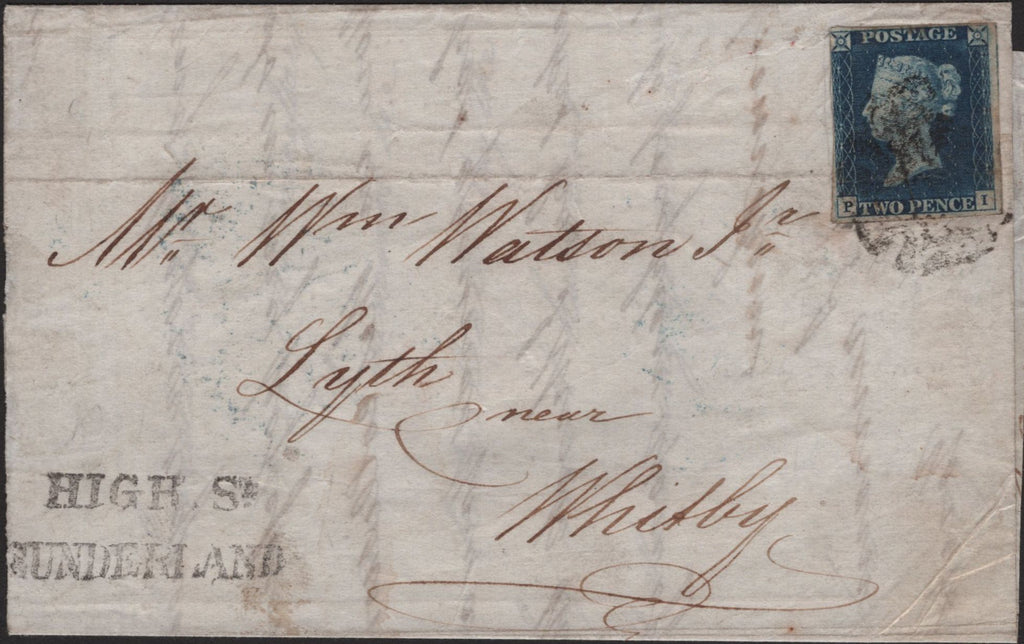 POSTAGE
P TWO PENCE I
Mr. Wm Watson Jr.
Lyth
near
Whitby
HIGH St.
SUNDERLAND